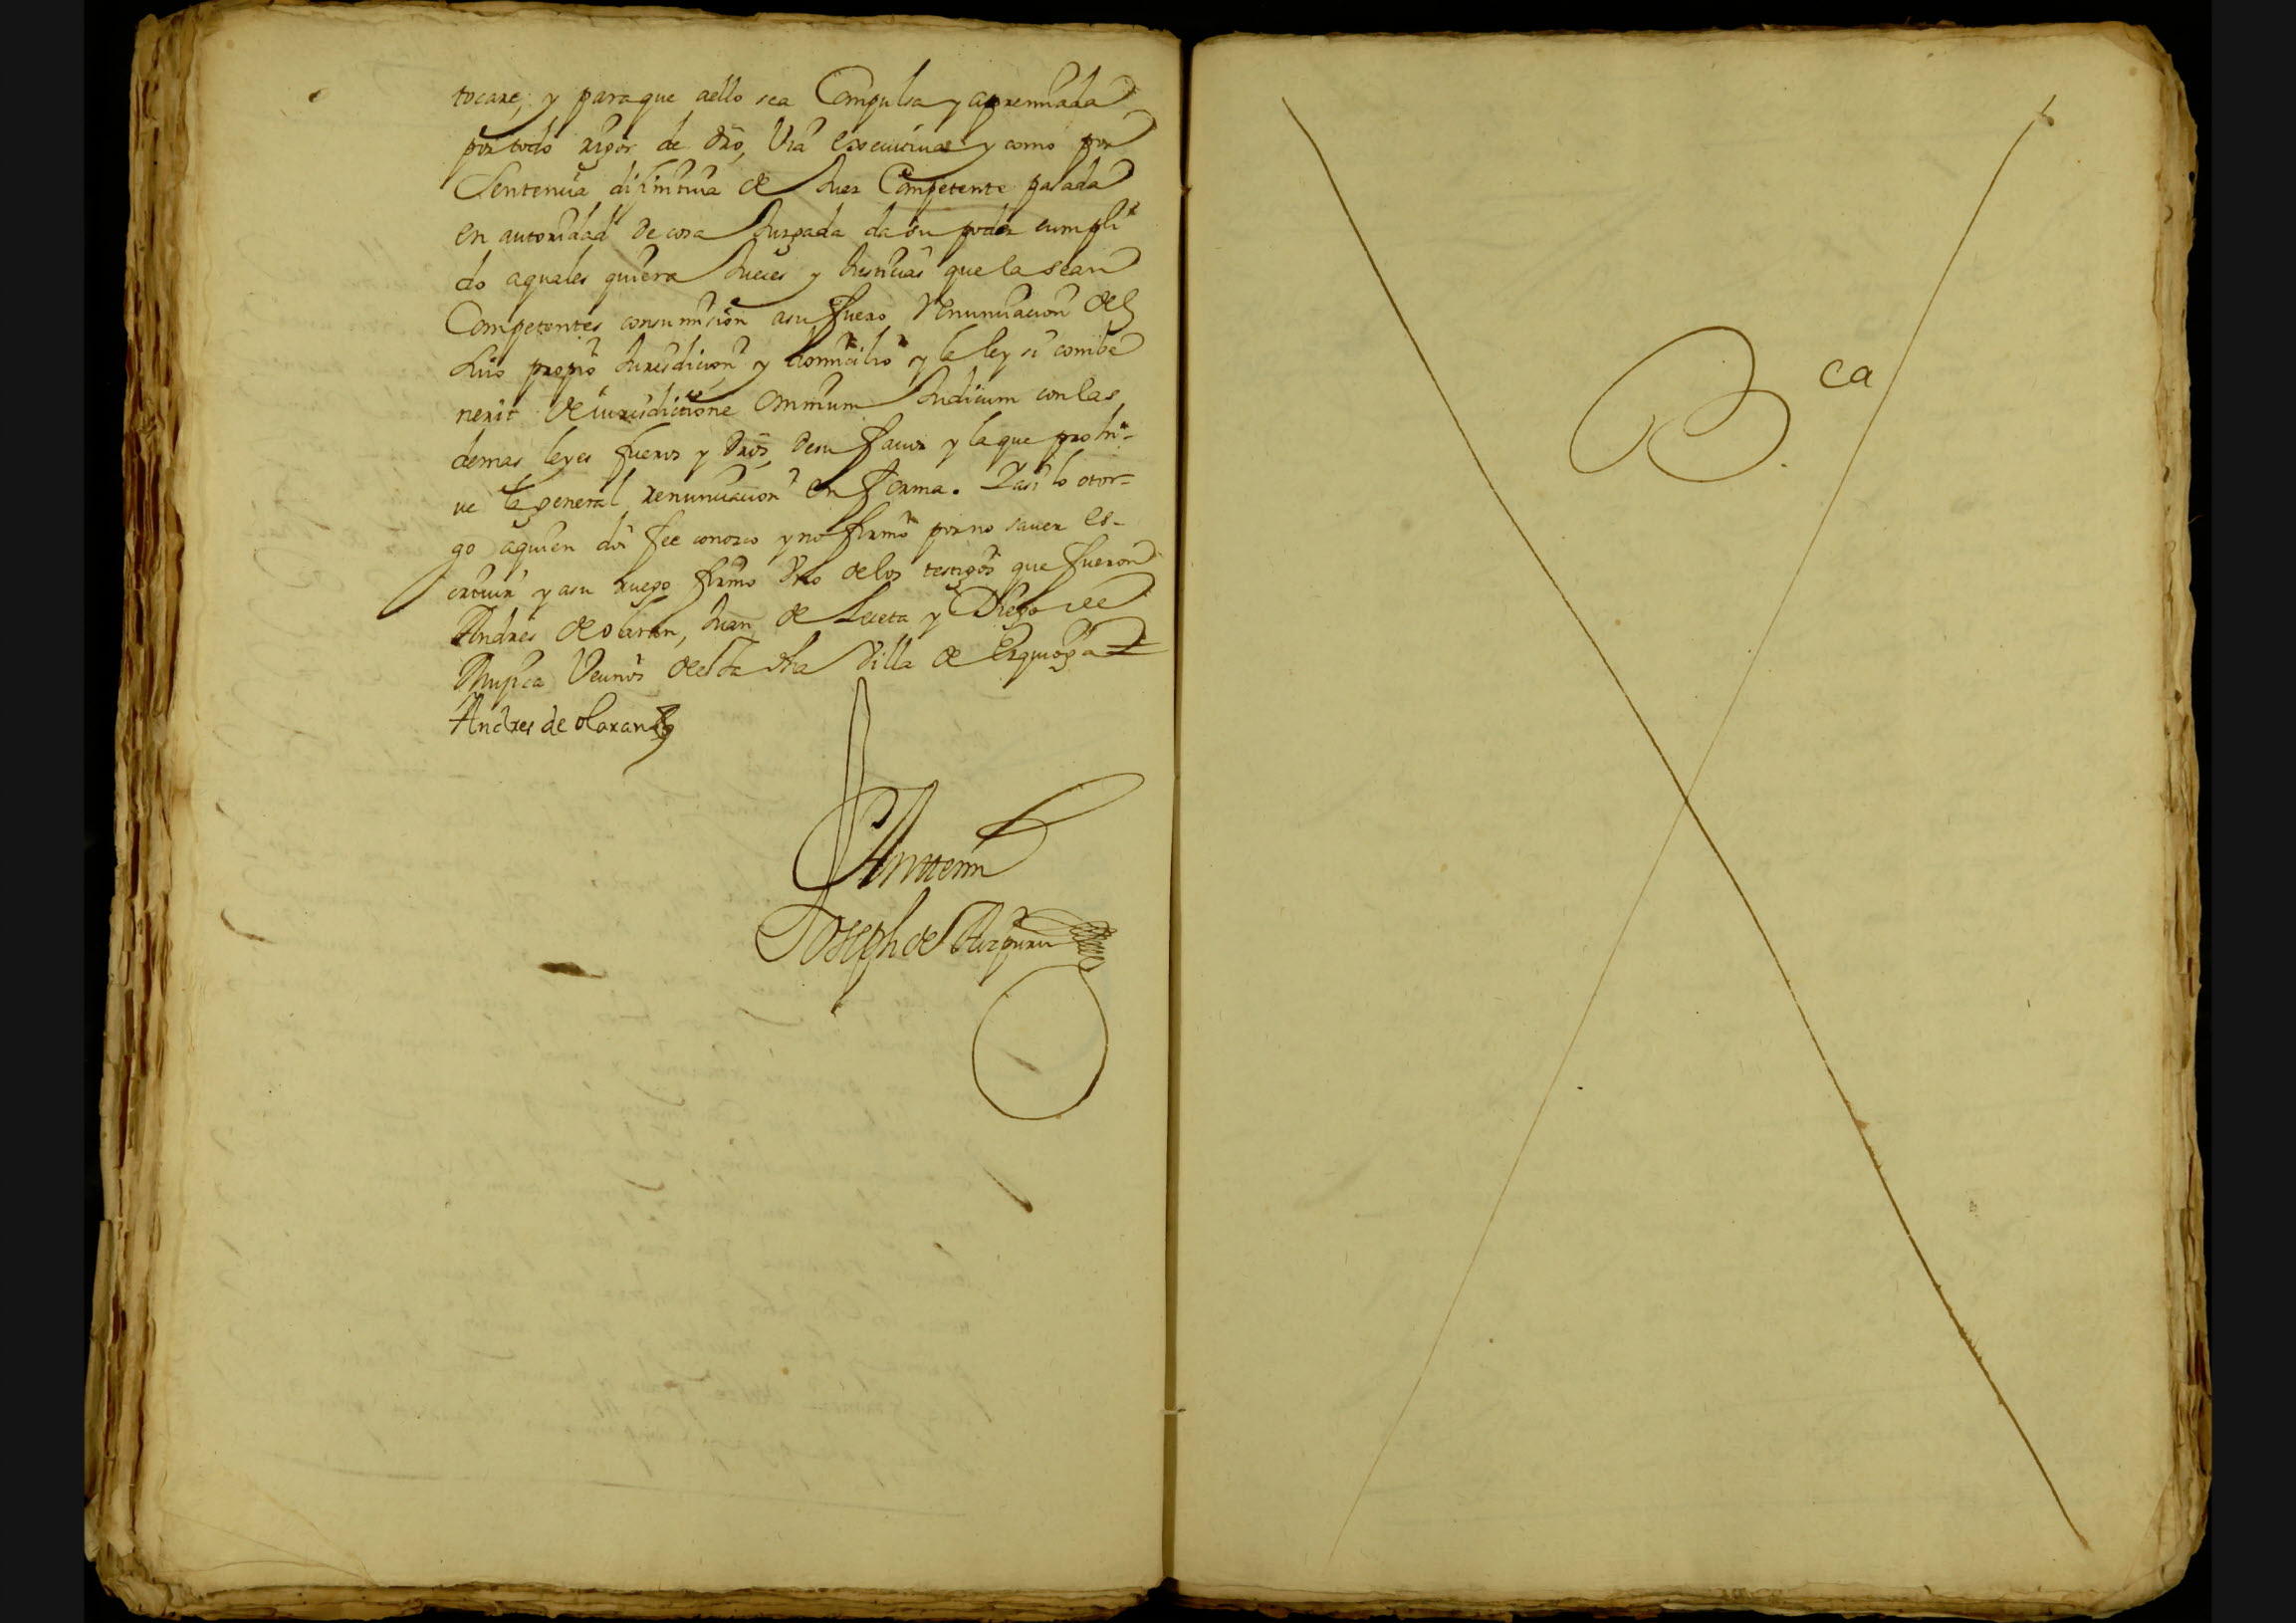 tocare, y paraque aello sea Compulsa y apremiada
por todo rigor de dro, Via executiua y como por
Sentencia difinitiua de Juez Competente pasada
en autoridad de cosa Juzgada da su poder cumpli
do aquales quiera Jueces y Justicias que la sean
Competentes consumision asu fuero Renunciacion del
suio propio Jurisdicion y domicilio y la ley si combe
nerit de iurisdictione Omnium Judicum con las
demas leyes fueros y dros desu fauor y la que prohi-
ue la general renunciacion en forma. Y asi lo otor-
go aquien doi fee conozco y no firmo por no sauer es-
criuir y asu ruego firmo Vno delos testigos que fueron
Andres de olaran, Juan de Leceta y Diego de
Mugica Vecinos desta dha Villa de Ezquioga
Andres de olaran
Antte mi
Joseph de Aizpuru
B.ca